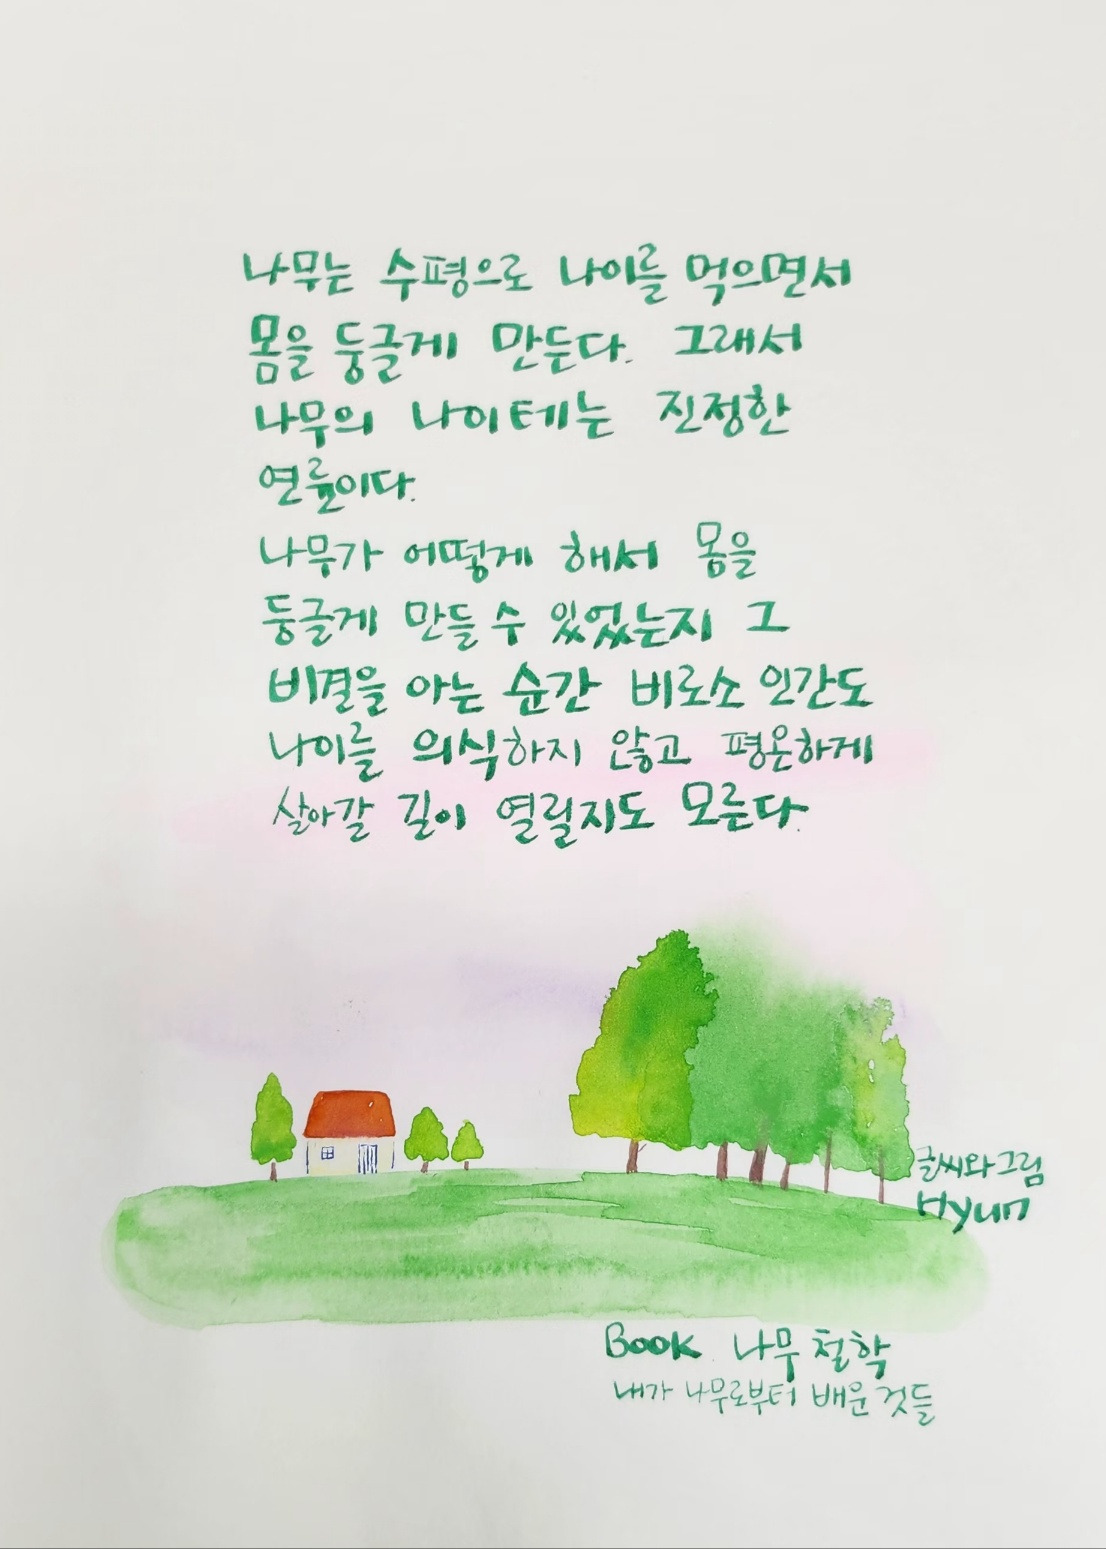 나무는 수평으로 나이를 먹으면서
몸을 둥글게 만든다. 그래서
나무의 나이테는 진정한
연륜이다.
나무가 어떻게 해서 몸을
둥글게 만들 수 있었는지 그
비결을 아는 순간 비로소 인간도
나이를 의식하지 않고 평온하게
살아갈 길이 열릴지도 모른다.
글씨와 그림
Hyun
Book 나무 철학
내가 나무로부터 배운 것들